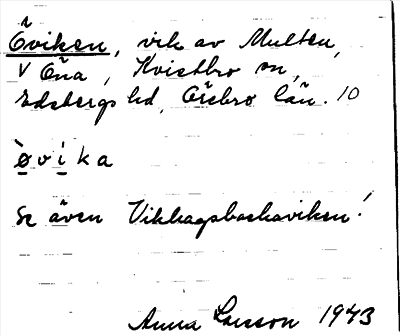 Öviken, vik av Multen,
V Öna, Kvistbro sn,
Edsbergs hd, Örebro län. 10
`øvika
Se även Vikhagsbackaviken!
Anna Larsson 1943